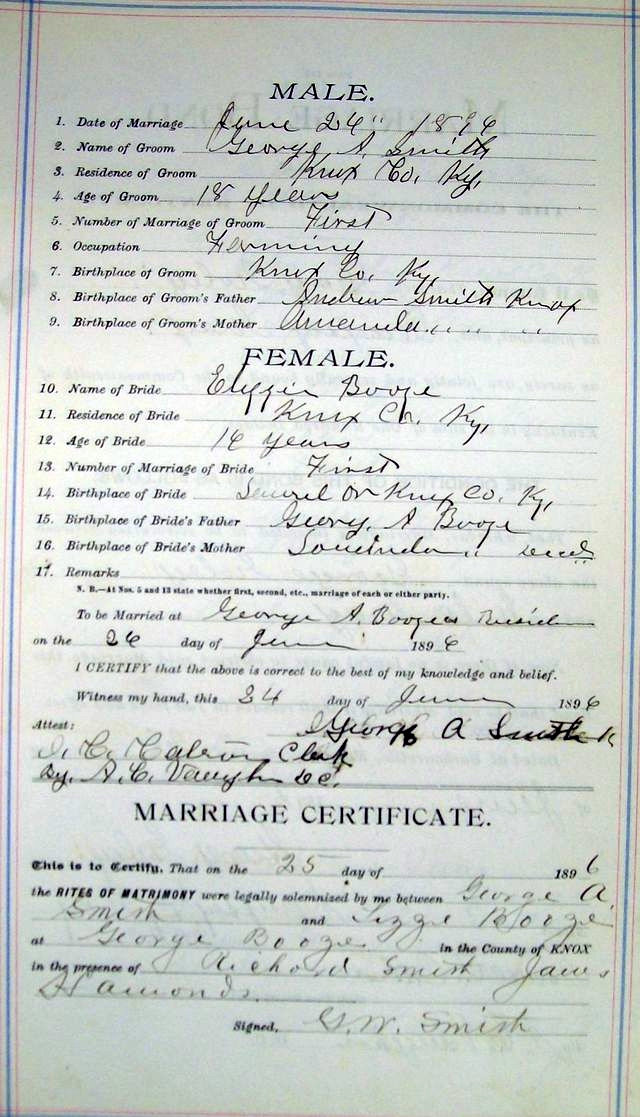 MALE.
1. Date of Marriage June 24" 1896
2. Name of Groom George A. Smith
3. Residence of Groom Knox Co, Ky,
4. Age of Groom 18 years
5. Number of Marriage of Groom First
6. Occupation Farming
7. Birthplace of Groom Knox Co, Ky,
8. Birthplace of Groom's Father Andrew Smith Knox
9. Birthplace of Groom's Mother Amanda " "
FEMALE.
10. Name of Bride Booze
11. Residence of Bride Knox Co, Ky,
12. Age of Bride 16 years
13. Number of Marriage of Bride First
14. Birthplace of Bride Knox Co, Ky,
15. Birthplace of Bride's Father A Booze
16. Birthplace of Bride's Mother Loucinda " Decd
17. Remarks
N. B.—At Nos. 5 and 13 state whether first, second, etc., marriage of each or either party.
To be Married at George A. Boozes
on the 26 day of June 1896
I CERTIFY that the above is correct to the best of my knowledge and belief.
Witness my hand, this 24 day of June 1896
Attest: George A Smith
Clerk
By. A. C. Vaughn D.C.
MARRIAGE CERTIFICATE.
This is to Certify, That on the 25 day of 1896
the RITES OF MATRIMONY were legally solemnized by me between George A.
Smith and Lizzie Booze
at George Boozes in the County of KNOX
in the presence of Richard Smith
Hamonds
Signed, G. W. Smith